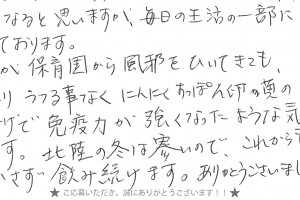 なると思いますが、毎日の生活の一部に
ております。
が保育園から風邪をひいてきても、
り うつる事なく にんにくすっぽん卵の黄の
げで免疫力が強くなったような気
す。北陸の冬は寒いので、これから
さず飲み続けます。ありがとうございまし
★ご応募いただき、誠にありがとうございます！！★